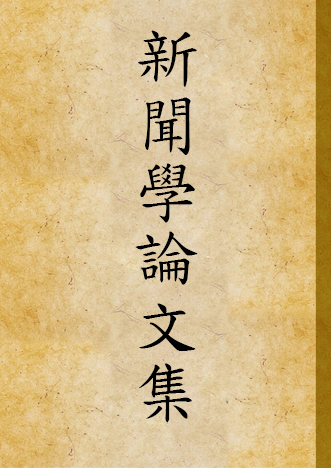 新聞學論文集